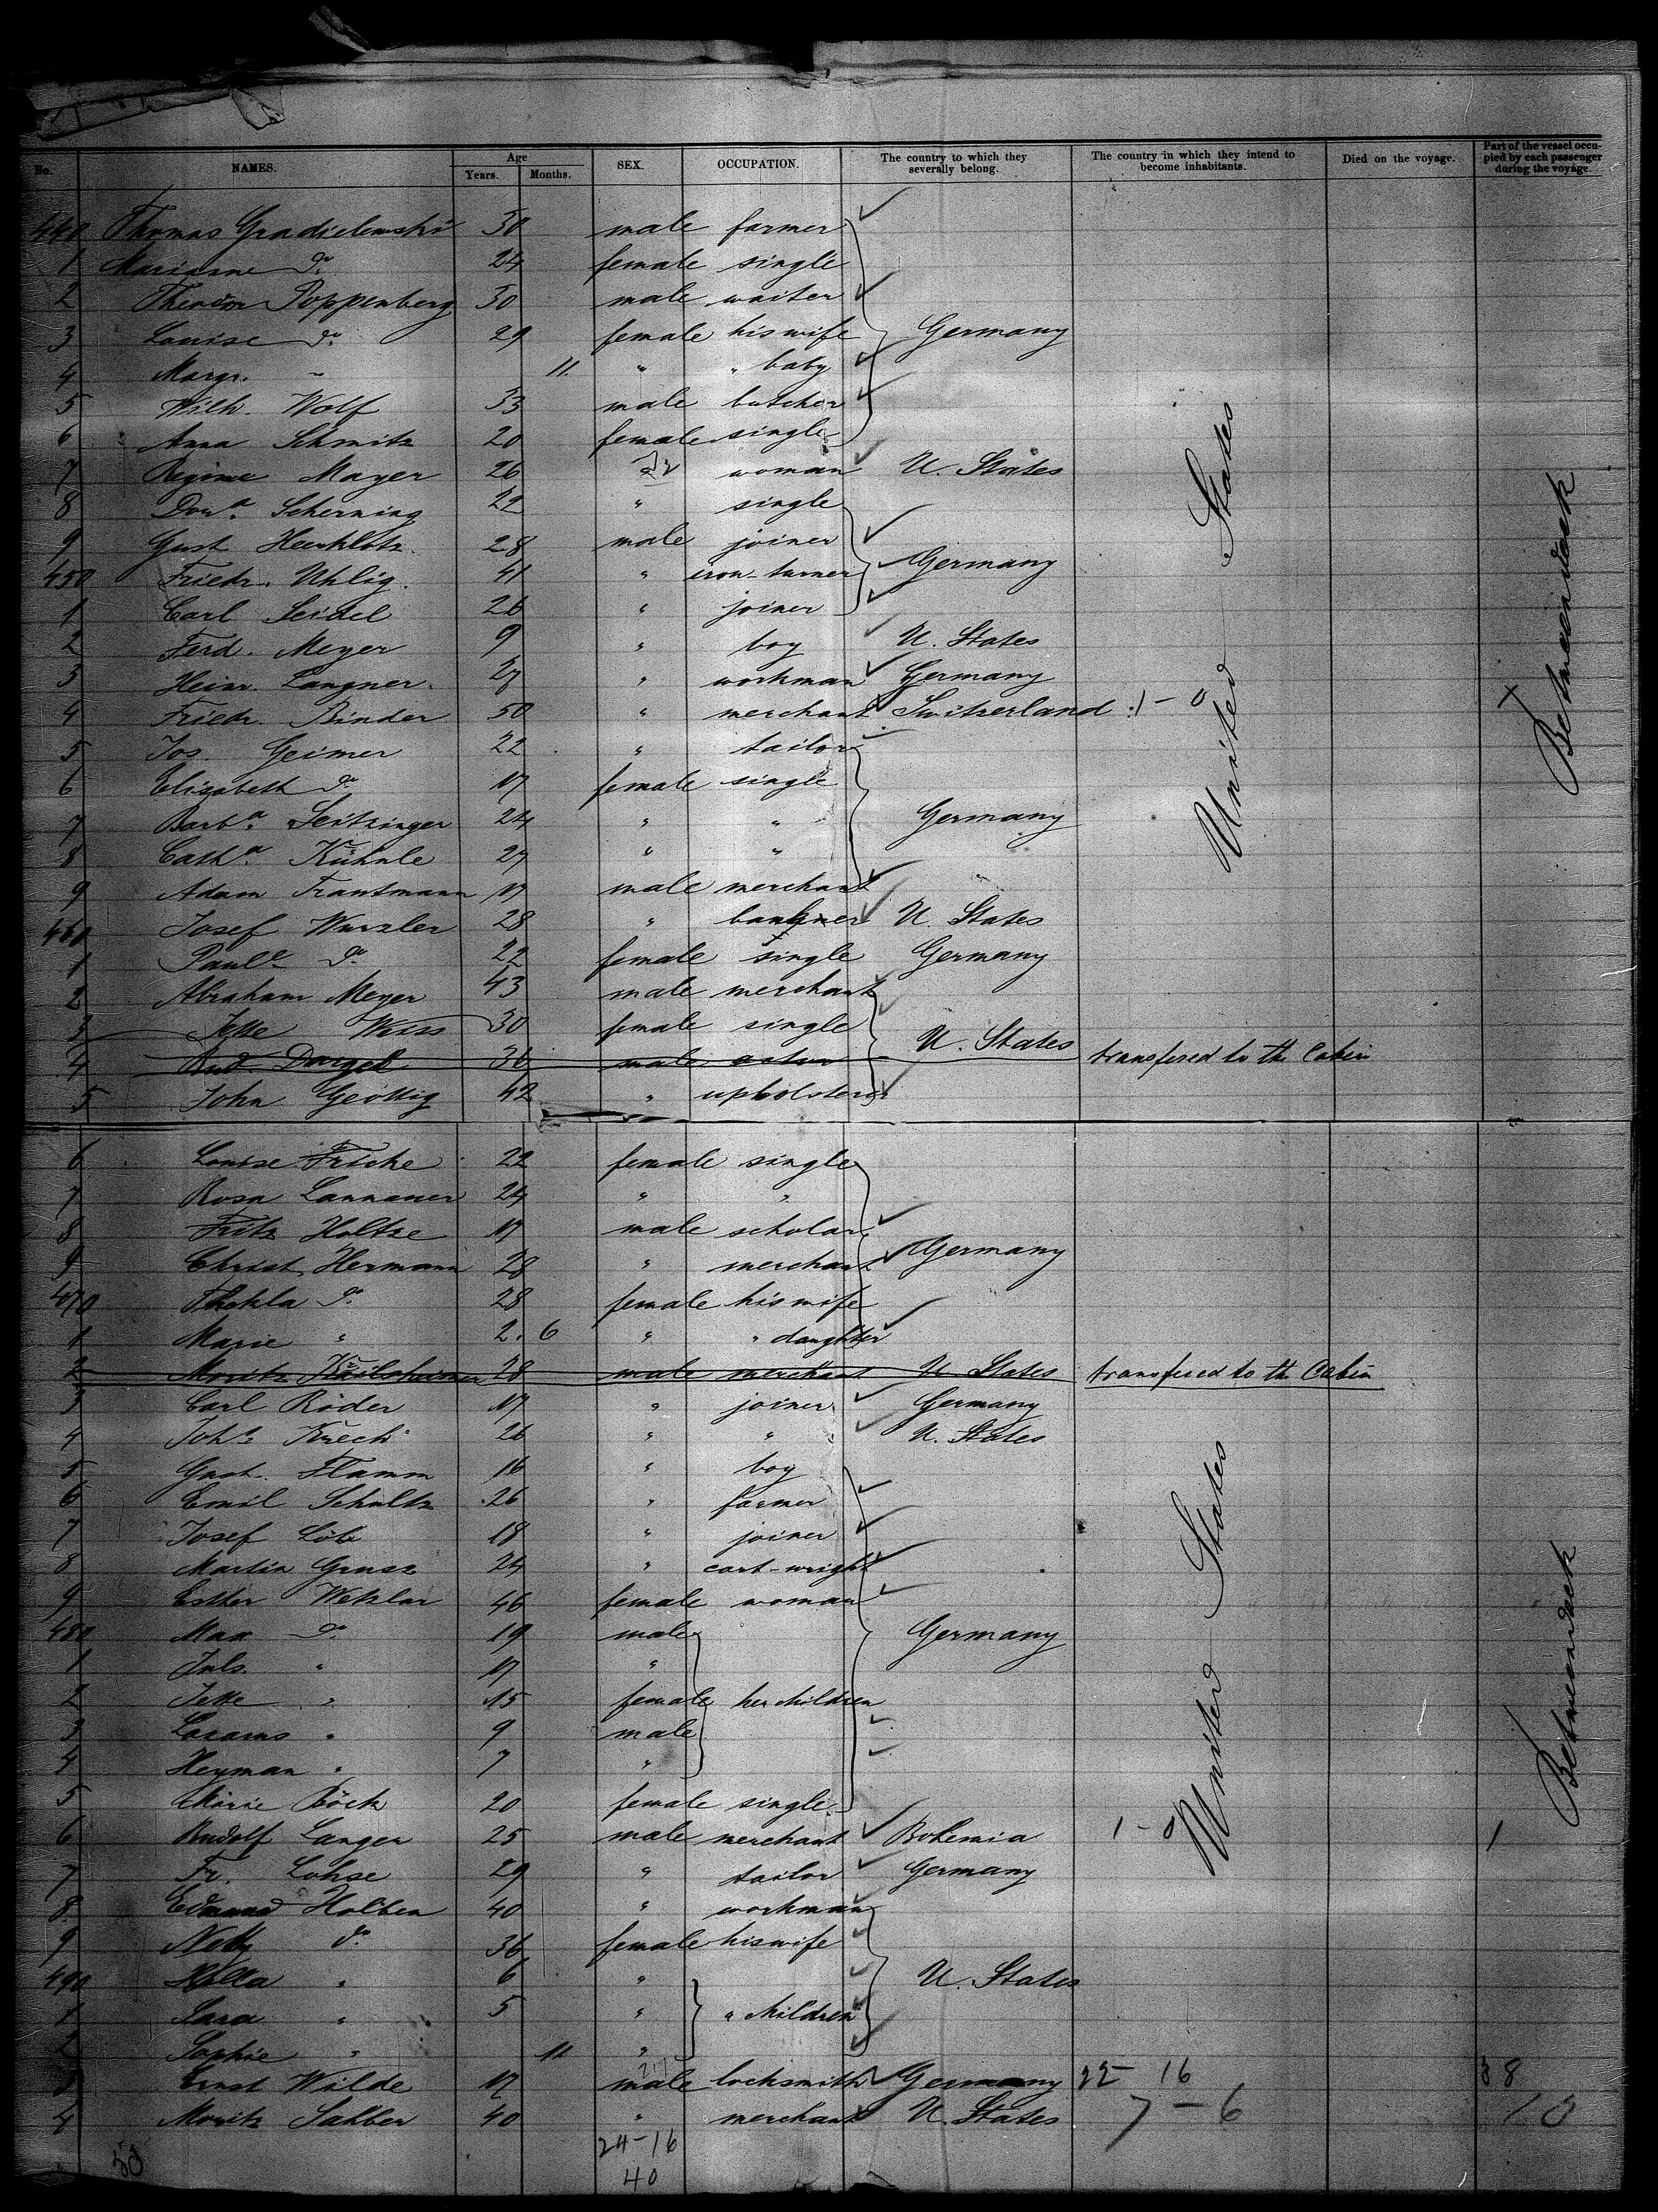 No. NAMES. Age Years. Months. SEX. OCCUPATION. The country to which they severally belong. The country in which they intend to become inhabitants. Died on the voyage. Part of the vessel occupied by each passenger during the voyage.
440 Thomas Gradielewski 30 male farmer
1 Marianne do 24 female single
2 Poppenberg 30 male waiter
3 Louise do 29 female his wife Germany
4 Margr. " 11 " " baby
5 Wilh. Wolf 33 male butcher
6 Anna Schmitz 20 female single
7 Regine Mayer 26 do woman U. States
8 Dora Scherning 22 " single
9 Gust Herklotz 28 male joiner
450 Friedr. Uhlig 41 " iron-turner Germany
1 Carl Seidel 26 " joiner
2 Ferd. Meyer 9 " boy U. States
3 Heinr. Langner 27 " workman Germany
4 Friedr. Binder 50 " merchant Switzerland 1-0
5 Jos. Geimer 22 " tailor
6 Elisabeth do 17 female single
7 Barba. Seitzinger 24 " " Germany
8 Catha. Kühnle 27 " "
9 Adam Trautmann 17 male merchant
460 Josef Wurzler 28 " U. States
1 Paule do 22 female single Germany
2 Abraham Meyer 43 male merchant
3 Jette Weiss 30 female single U. States
4 Rud. Dargel 36 male actor transfered to the Cabin
5 John Geottig 42 " upholsterer
United States
Betweendeck
6 Louise Fricke 22 female single
7 Rosa Lannauer 24 " "
8 Fritz Holtze 17 male scholar
9 Christ. Hermann 28 " merchant Germany
470 Thekla do 28 female his wife
1 Marie " 2. 6 " " daughter
2 Moritz 28 male merchant U States transfered to the Cabin
3 Carl Röder 17 " joiner Germany
4 Joh. Krech 26 " " U. States
5 Gust. Flamm 16 " boy
6 Emil Schultz 26 " farmer
7 Josef Löb 18 " joiner
8 Martin Grusz 24 " cart-wright
9 Esther Wetzlar 46 female woman
480 Max do 19 male Germany
1 Juls. " 17 "
2 Jette " 15 female her children
3 Lazarus " 9 male
4 Heyman " 7 "
5 Marie Böck 20 female single
6 Rudolf Langer 25 male merchant Bohemia 1-0 1
7 Fr. Lohse 29 " tailor Germany
8 Edmund Holben 40 " workman
9 Netty do 36 female his wife
490 " 6 " U. States
1 Sara " 5 " " children
2 Sophie " 11 "
3 Ernst Wilde 17 male locksmith Germany 22-16 38
4 Moritz Salber 40 " merchant U. States 7-6 10
United States
Betweendeck
24-16
50 40